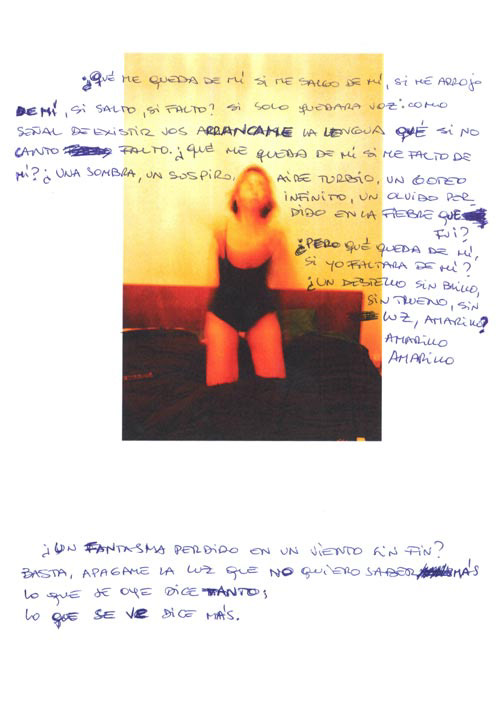 ¿QUÉ ME QUEDA DE MÍ SI ME SALGO DE MÍ, SI ME ARROJO
DE MÍ, SI SALTO, SI FALTO? SI SOLO QUEDARA VOZ: COMO
SEÑAL DE EXISTIR VOS ARRANCAME LA LENGUA QUÉ SI NO
CANTO FALTO. ¿QUÉ ME QUEDA DE MÍ SI ME FALTO DE
MÍ? ¿UNA SOMBRA, UN SUSPIRO, AIRE TURBIO, UN GOTEO
INFINITO, UN OLVIDO PER
DIDO EN LA FIEBRE QUE
FUI?
¿PERO QUÉ QUEDA DE MÍ,
SI YO FALTARA DE MÍ?
¿UN DESTELLO SIN BRILLO,
SIN TRUENO, SIN
LUZ, AMARILLO?
AMARILLO
AMARILLO
¿UN FANTASMA PERDIDO EN UN VIENTO SIN FIN?
BASTA, APAGAME LA LUZ QUE NO QUIERO SABER MÁS
LO QUE SE OYE DICE TANTO;
LO QUE SE VE DICE MÁS.